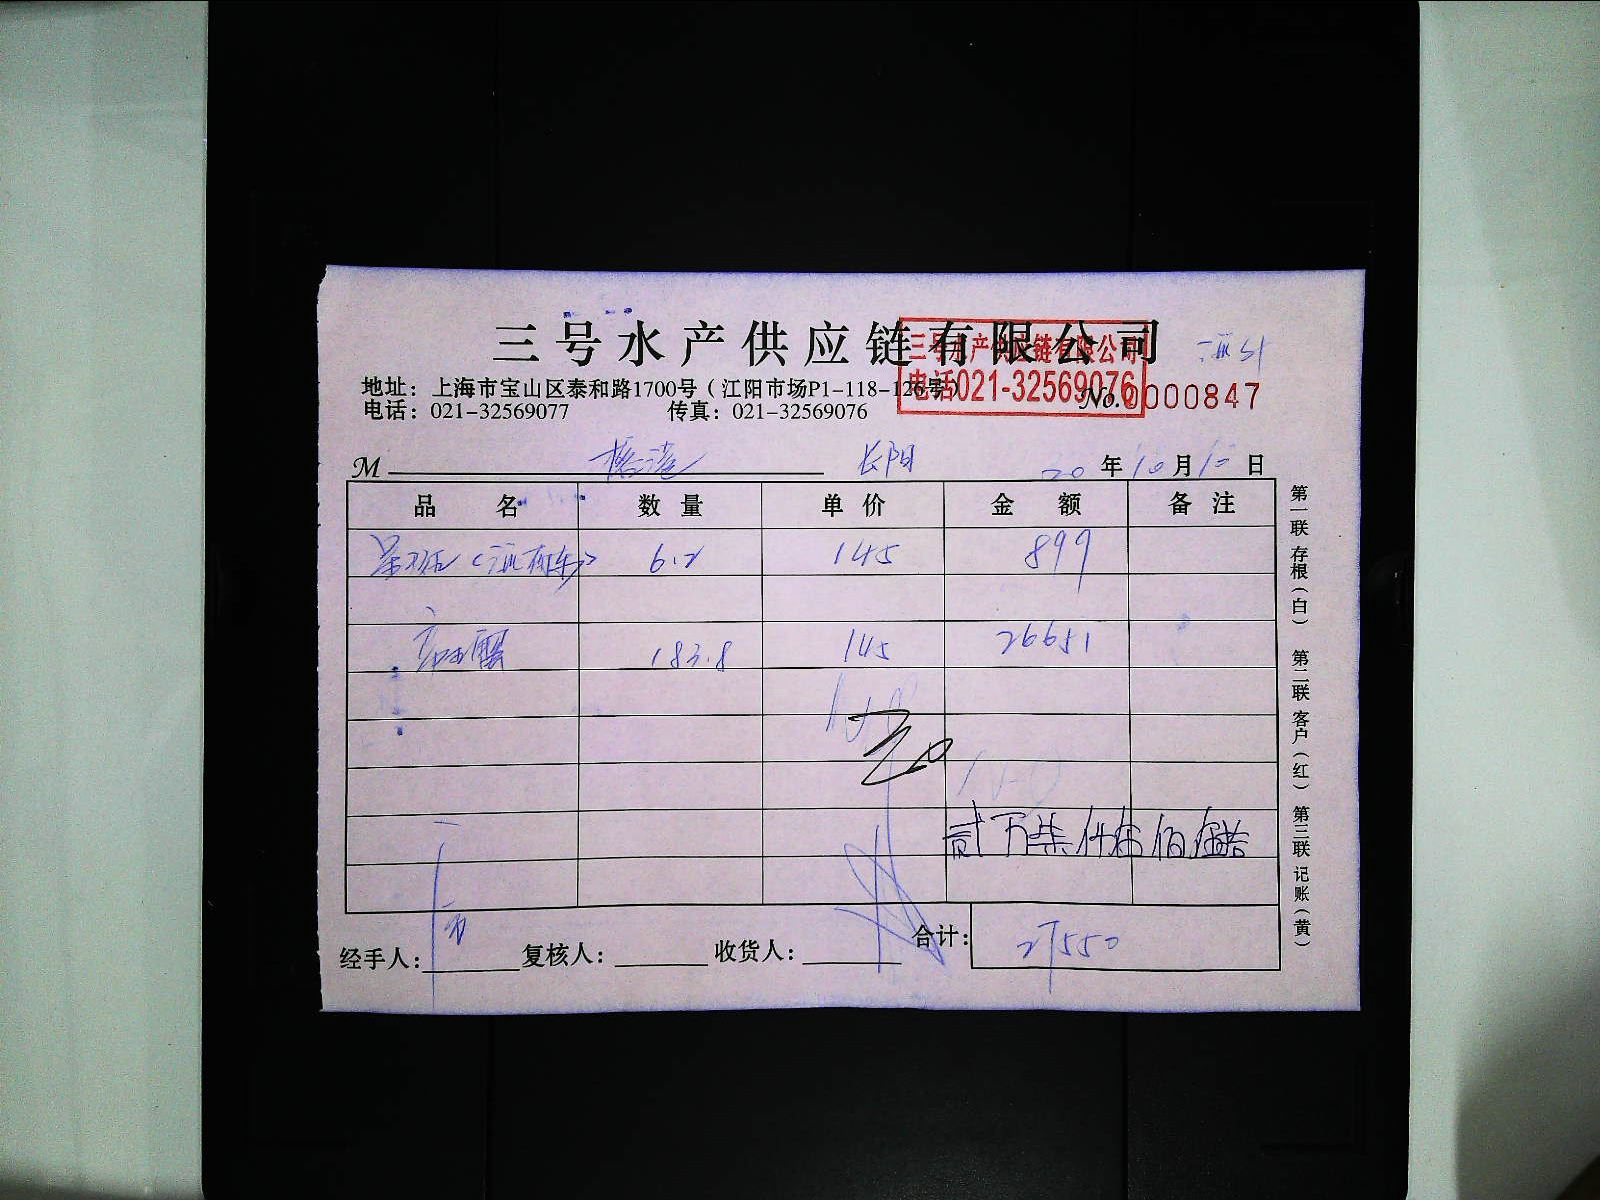 三号水产供应链有限公司
三号水产供应链有限公司
电话021-32569076
地址：上海市宝山区泰和路1700号（江阳市场P1-118-126号）
No.0000847
电话：021-32569077 传真：021-32569076
M 长阳 20年10月10日
品名 数量 单价 金额 备注
6.2 145 899
183.8 145 26651
贰万柒仟伍佰伍拾
经手人： 复核人： 收货人： 合计： 27550
第一联 存根（白） 第二联 客户（红） 第三联 记账（黄）